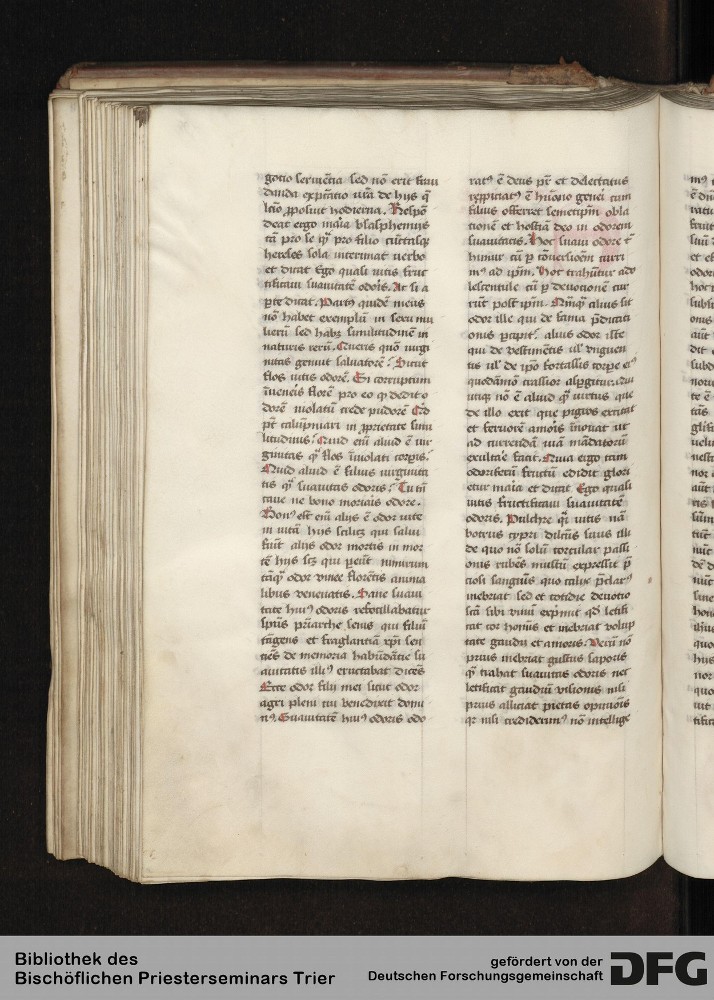 gocio sermēcia sed nō erit frau
danda expectatio vr̄a de hijs q̄
loīo ꝓposuit hodierna. Respō
deat ergo maīa blasphemijs
tā pro se qͥ pro filio cūctasqꝫ
hereses sola interimat verbo
et dicat Ego quasi vitis fruc
tificaui suauitatē odoīs. At si a
ꝑte dicat. Partꝰ quidē meus
nō habet exemplū in sexu mu
lierū sed habꝫ similitudinē in
naturis rerū. Queris quō virgi
nitas genuit saluatorē? Sicut
flos vitis odorē. Si corruptum
īueneīs florē pro eo qͥ dedit o
dorē violatū crede pudorē Qͥd
pt̄ calūpniari in ꝓprietate simi
litudinis? Quid em̄ aliud ē vir
ginitas qͣ flos īuiolati corpīs?
Quid aliud ē filius virginita
tis qͣ suauitas odoris? Tu tn̄
caue ne bono moriaīs odore.
Bonꝰ est em̄ alijs ē odor vite
in vitā hijs scilicꝫ qui salui
fiūt alijs odor mortis in mor
tē hijs scꝫ qui ꝑeūt nimirum
tāqͣ odor vinee florētis anima
libus venenatis. Sane suaui
tate huiꝰ odoris refocillabatur
spūs pr̄iarche senis qui filiū
tāgens et fraglantiā xp̄i sen
tiēs de memoria habūdātie su
auitatis illiꝰ eructabat dicēs
Ecce odor filij mei sicut odor
agri pleni cui benedixit domi
nꝰ. Suauitatē huiꝰ odoris odo
ratꝰ ē deus pr̄ et delectatus
respiciatꝰ ē hūano generi cum
filius offerret semetipm̄ obla
tionē et hostiā deo in odorem
suauitatis. Hoc suaui odore t̄
himur cū ꝑ cōuersioem̄ curri
mꝰ ad ipm̄. Hoc trahūtur ado
lescentule cū ꝑ deuotionē cur
rūt post ipm̄. Nūqͣ alius sit
odor ille qui de fama p̄dicati
onis ꝑcipit͛. alius odor iste
qui de vestimētis vl̛ vnguen
tis vl̛ de ipō fortassis corpe eiꝰ
quodāmō crassior aspͣgitur. qui
utiqꝫ nō ē aliud qͣ virtus que
de illo exit que pigros excitat
et feruorē amoīs īnouat ut
ad currendā viā mādatorū
exultāt̛ faciat. Quia ergo tam
odoriferū fructū edidit glori
etur maīa et dicat Ego quasi
vitis fructificaui suauitatē
odoris. Pulchre qͣi vitis nā
botrus cypri dilc̄us suus illi
de quo nō solū torcular passi
onis rubēs mustū expressit p̄
ciosi sanguīs quo calix p̄clarꝰ
inebriat sed et cotidie deuotio
sctā sibi vinū exp̄mit qd̄ letifi
cat cor hoīnis et inebriat volup
tate gaudij et amoris. Verū nō
prius inebriat gustus saporis
qͣ trahat suauitas odoris nec
letificat gaudiū visionis nisi
prius alliciat pietas opinioīs
qr nisi crediderimꝰ nō intellige
Bibliothek des
Bischöflichen Priesterseminars Trier
gefördert von der
Deutschen Forschungsgemeinschaft
DFG